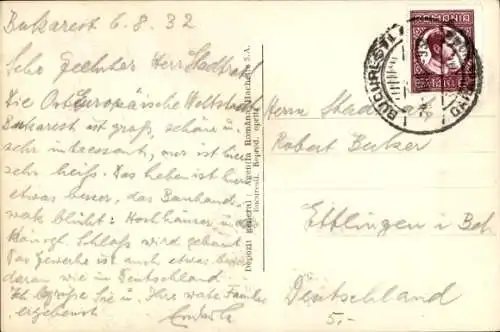 Bukarest 6.8.32
Sehr geehrter Herr Stadtrat
Die Osteuropäische Weltstadt
Bukarest ist groß, schön u.
sehr interessant, nur ist hier
sehr heiß. Das Leben ist hier
etwas besser, das Bauhand-
werk blüht: Hochhäuser u. das
Königl. Schloß wird gebaut
Das Gewerbe ist auch etwas besser
daran wie in Deutschland.
Ich begrüße Sie u. Ihre Familie
ergebenst
Depozit General: Agenția Română Hachette S.A.
București. Reprod. oprită
ROMANIA
BUCUREȘTI
Herrn Stadtrat
Robert Becker
Ettlingen i Bad.
Deutschland
5.-